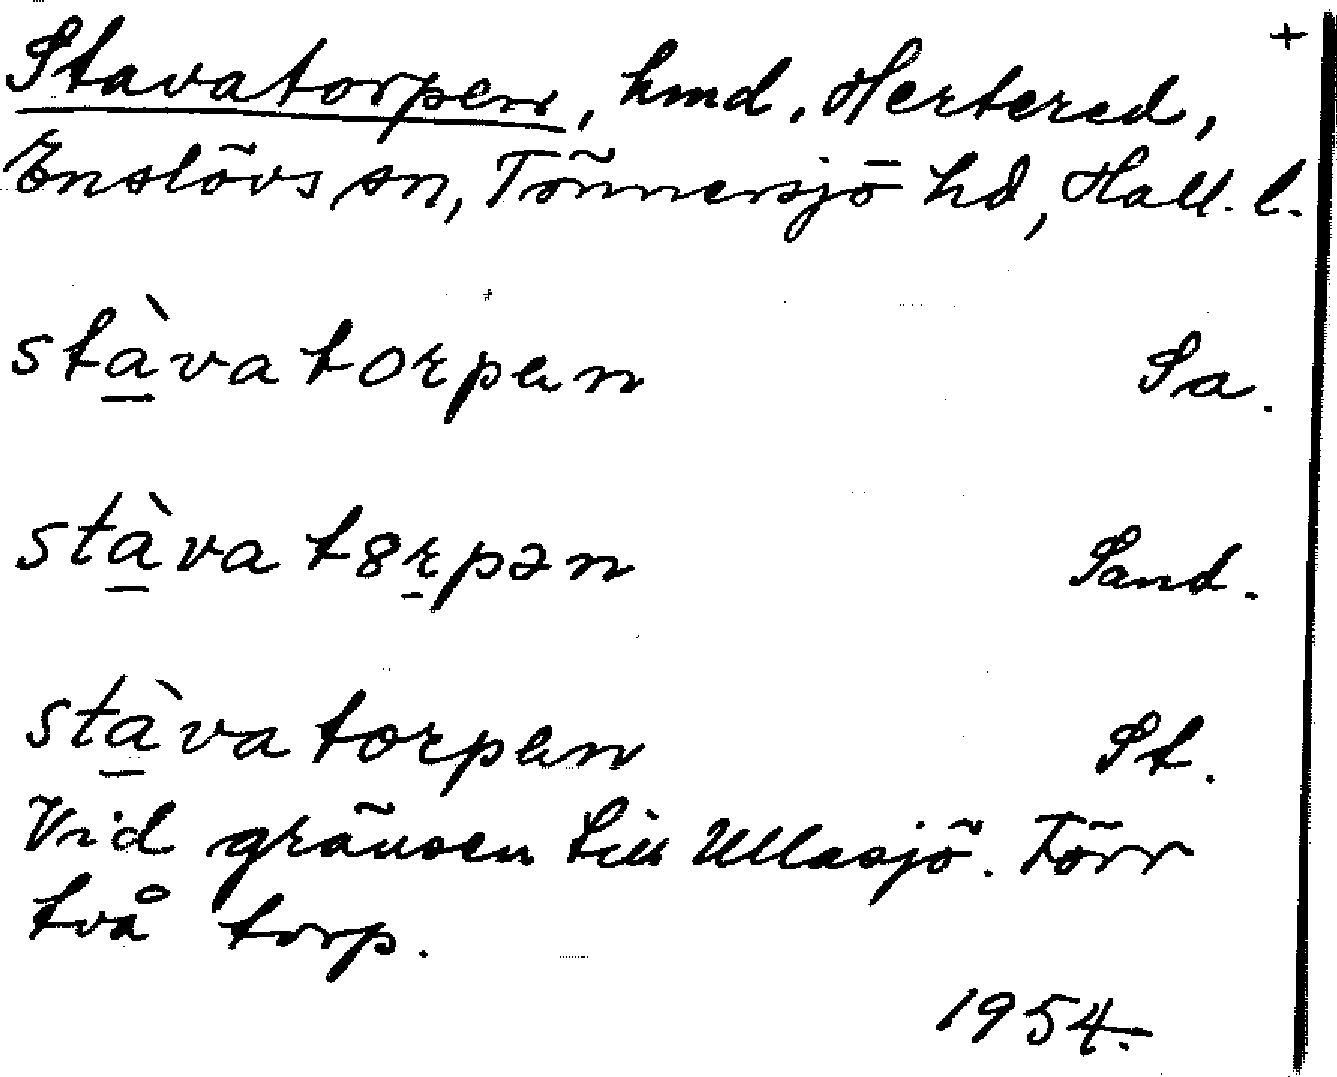 +
Stavatorpen, hmd. Hertered,
Enslövs sn, Tönnersjö hd, Hall. l.
stàvatorpen Sa.
stàvat8rpən Sand.
stàvatorpen St.
Vid gränsen till Ullasjö. Förr
två torp.
1954.